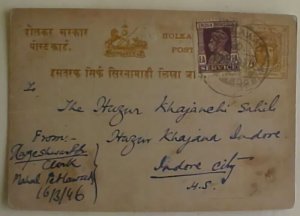 होलकर सरकार
पोस्ट कार्ड.
HOLKA
POST
इस तरफ सिर्फ सिरनामाही लिखा जा
To
The Huzur Khajanchi Sahib
Huzur Khajana Indore.
Indore City
From:-
Rameshwar
Clerk
Mahal Petlawad
6/3/46